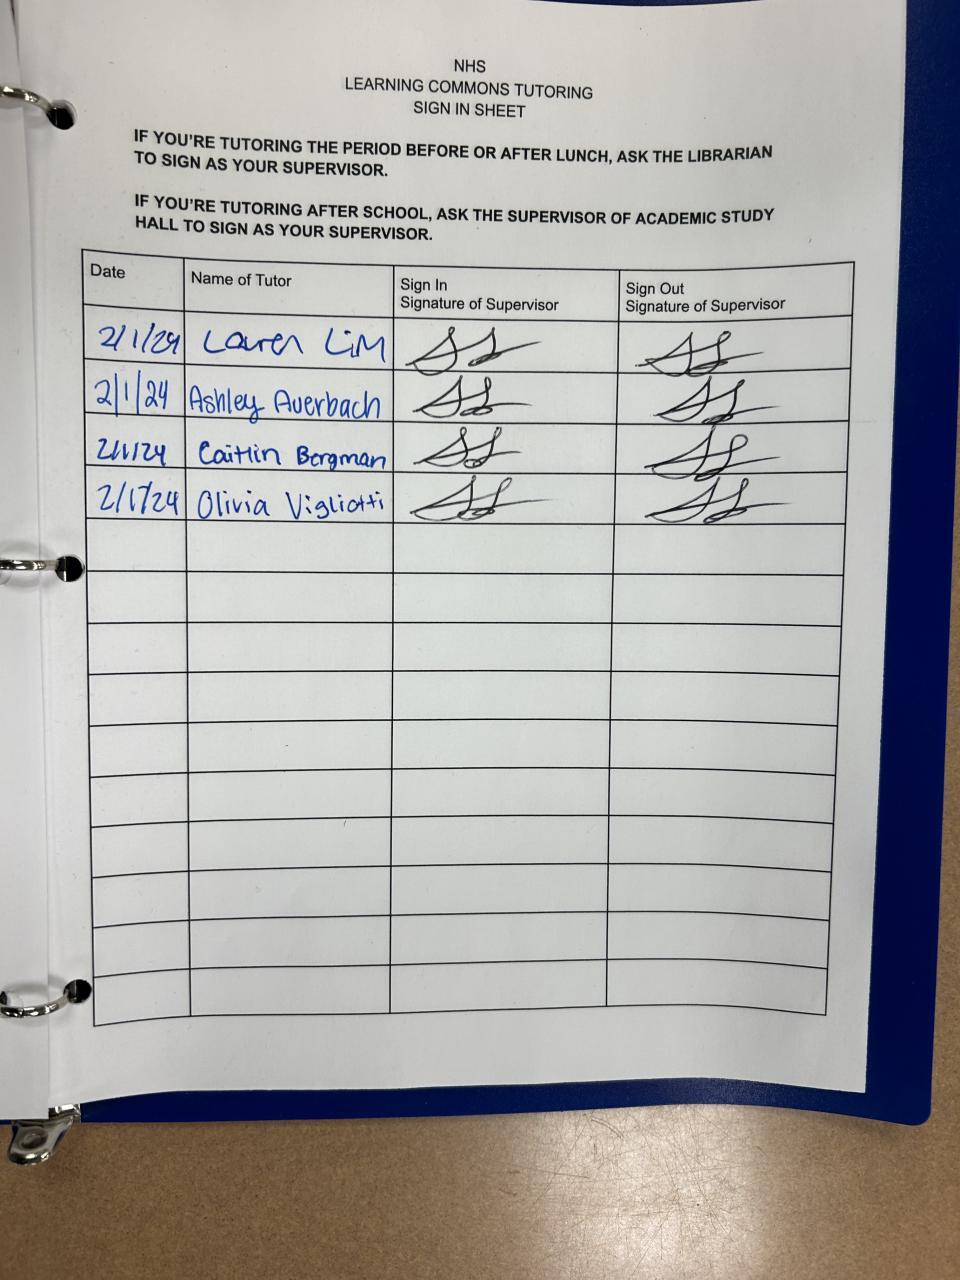 NHS
LEARNING COMMONS TUTORING
SIGN IN SHEET
IF YOU'RE TUTORING THE PERIOD BEFORE OR AFTER LUNCH, ASK THE LIBRARIAN
TO SIGN AS YOUR SUPERVISOR.
IF YOU'RE TUTORING AFTER SCHOOL, ASK THE SUPERVISOR OF ACADEMIC STUDY
HALL TO SIGN AS YOUR SUPERVISOR.
Date Name of Tutor Sign In Sign Out
Signature of Supervisor Signature of Supervisor
2/1/24 Lauren LiM
2/1/24 Ashley Auerbach
2/1/24 Caitlin Bergman
2/1/24 Olivia Vigliotti